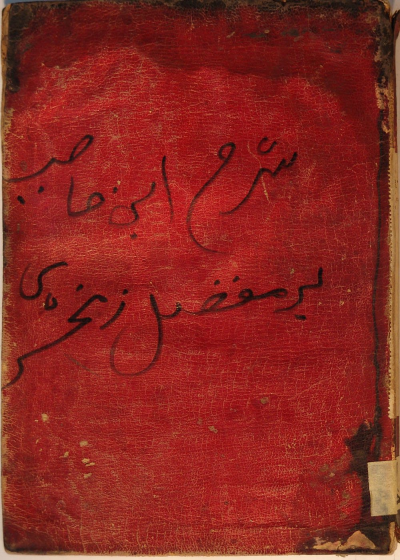 شرح ابن حاجب
بر مفصل زمخشری